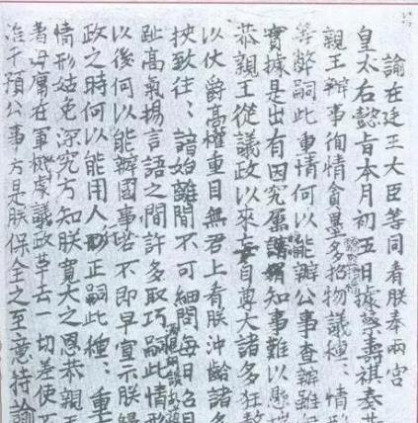 諭在廷王大臣等同看朕奉兩宮
皇太右懿旨本月初五日據蔡壽祺奏
親王辦事徇情貪墨多招物議種〻情
等弊嗣此重情何以能辦公事查辦雖
實據是出有因究屬知事難以懸
恭親王從議政以來妄自尊大諸多狂
以仗爵高權重目無君上看朕沖齡諸
挾致往〻諳始離間不可細問每日召見
趾高氣揚言語之間許多取巧嗣此情形
以後何以能辦國事若不即早宣示朕歸
政之時何以能用人行正嗣此種〻重
情形姑免深究方知朕寬大之恩恭親王
着毋庸在軍機處議政革去一切差使不
准干預公事方是朕保全之至意特諭